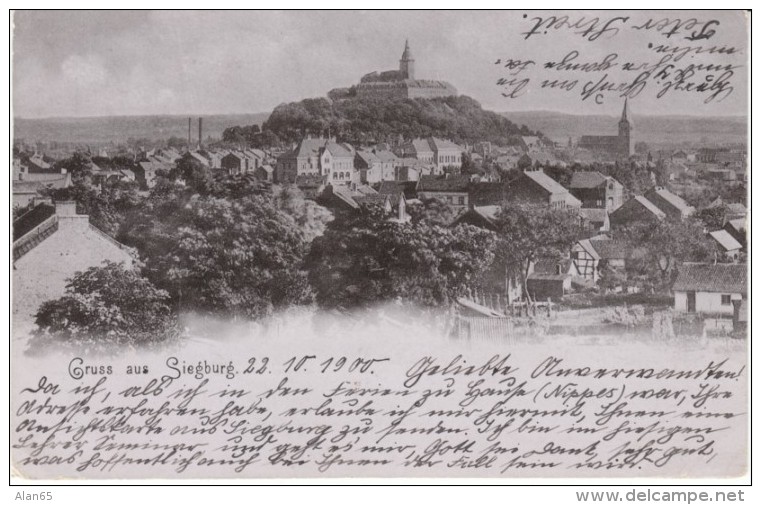 Gruss aus Siegburg. 22. 10. 1900. Geliebte Anverwandten!
Da ich, als ich in den Ferien zu Hause (Nippes) war, Ihre
Adresse erfahren habe, erlaube ich mir hiermit, Ihnen eine
Ansichtskarte aus Siegburg zu senden. Ich bin im hiesigen
Lehrer Seminar und geht es mir, Gott sei Dank, sehr gut,
was hoffentlich auch bei Ihnen der Fall sein wird.
Gruss an
und Ihre ganze Fa-
milie.
Peter Streit.
Alan65
www.delcampe.net